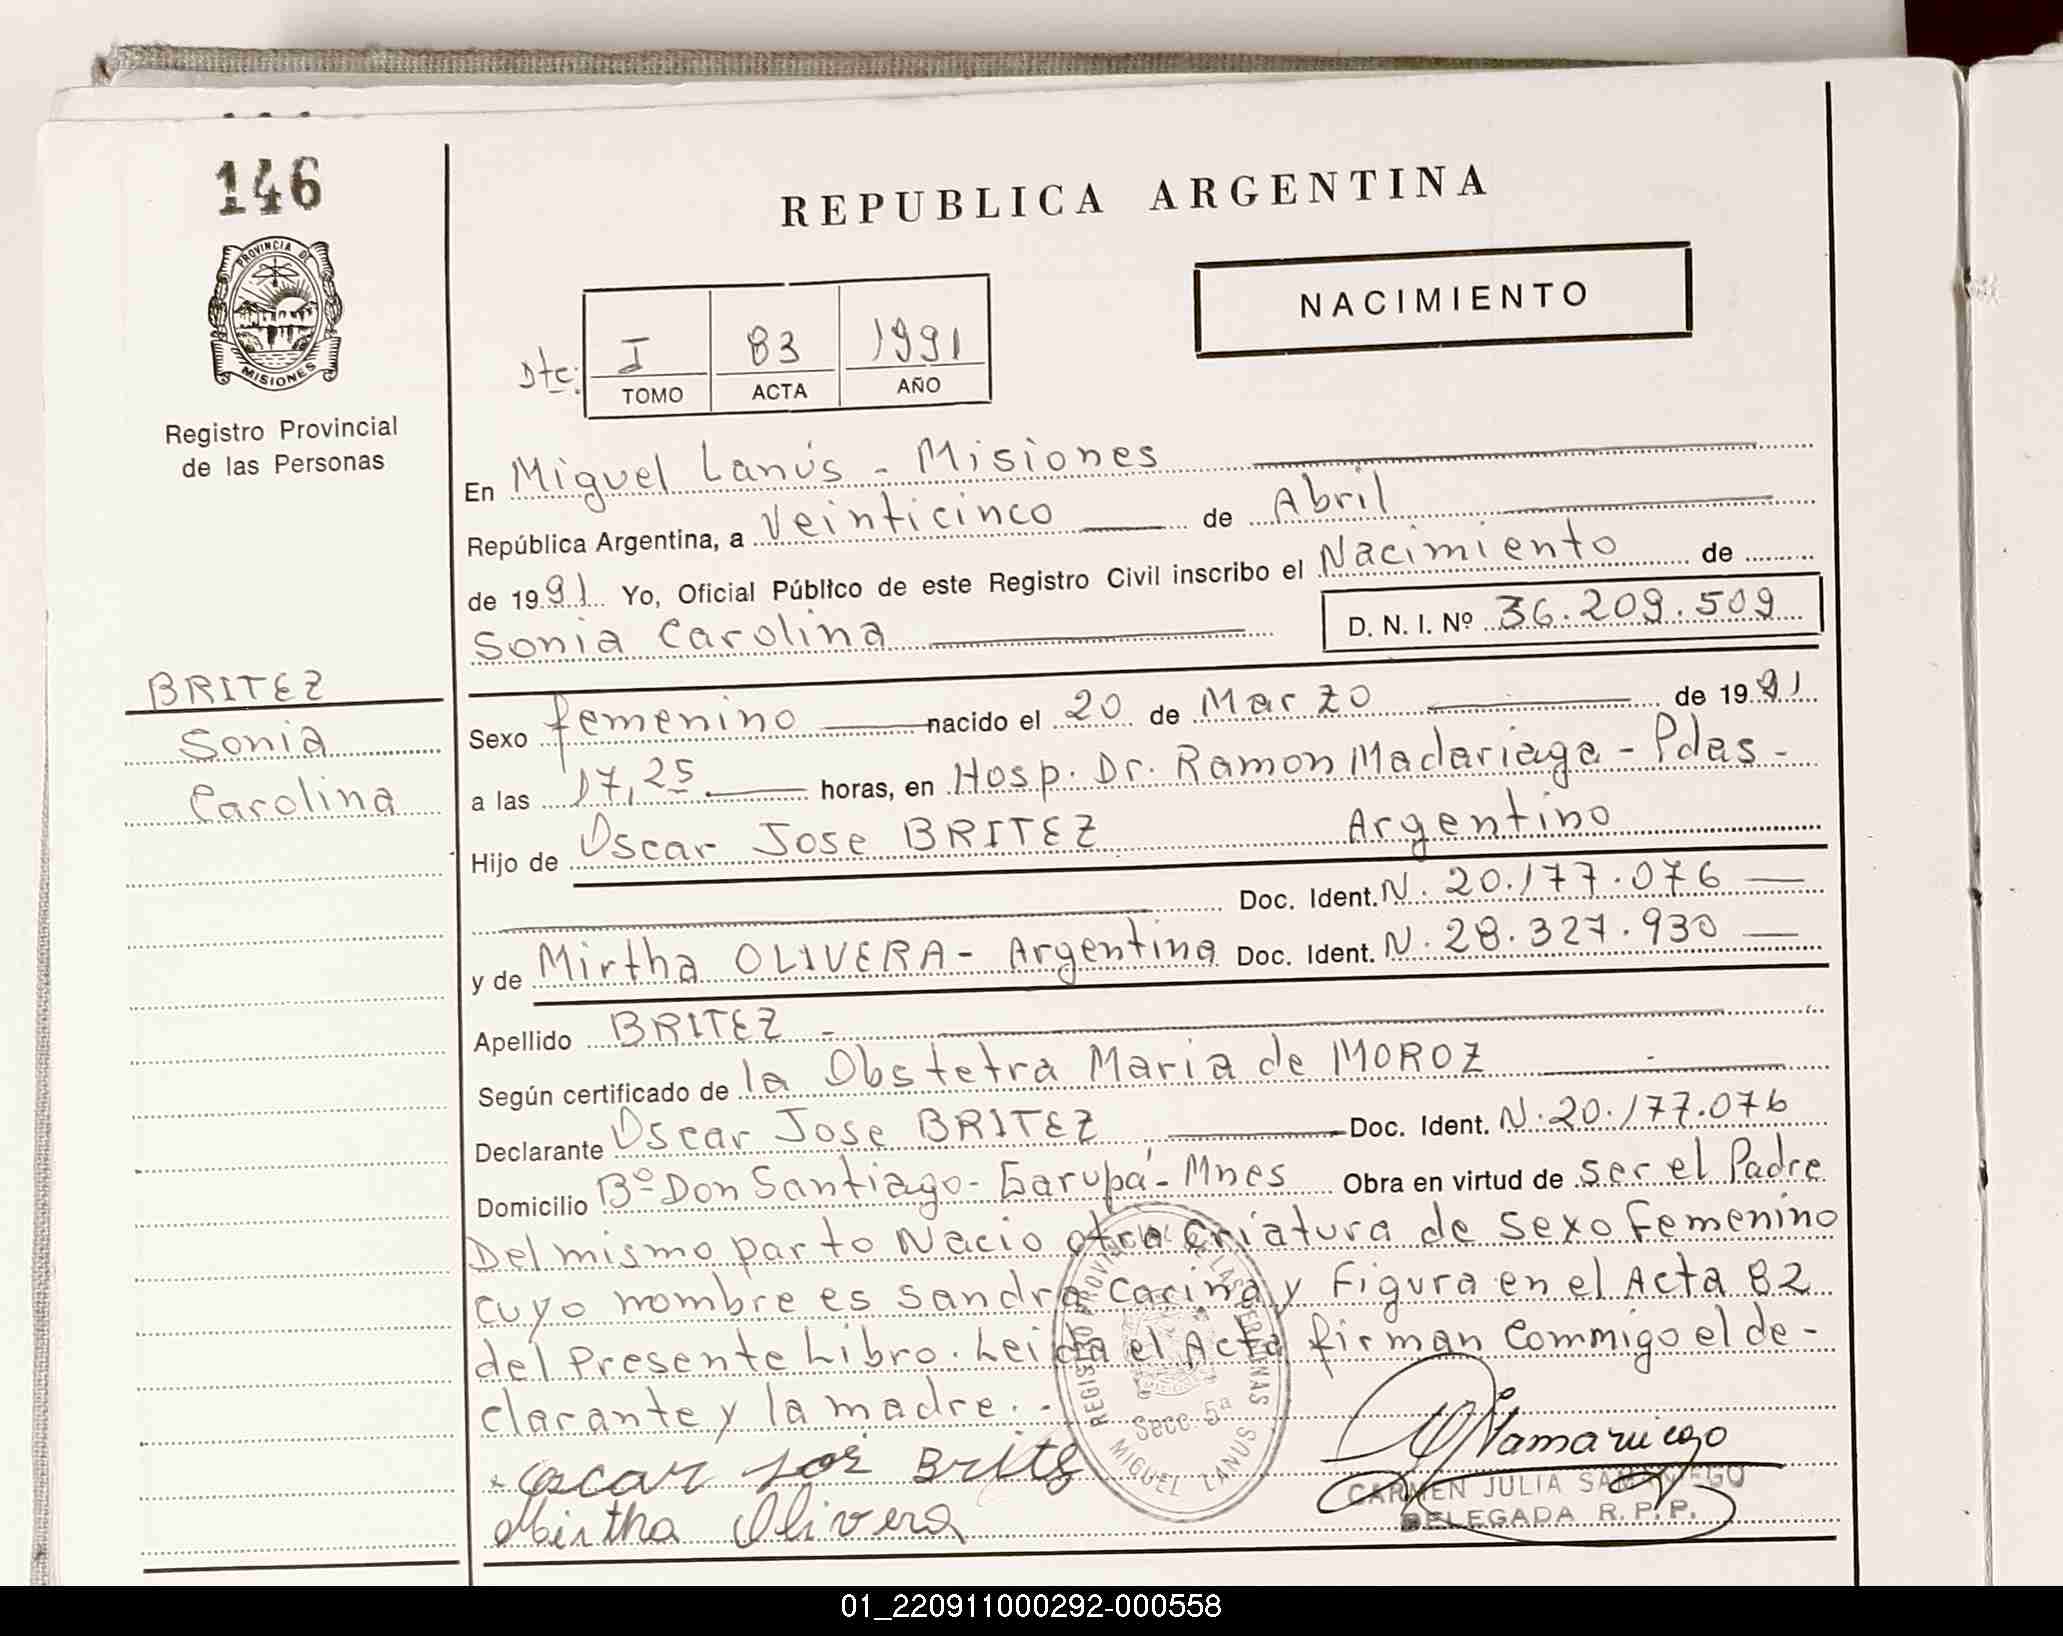 146
REPUBLICA ARGENTINA
PROVINCIA DE
MISIONES
NACIMIENTO
Dto: I 83 1991
TOMO ACTA AÑO
Registro Provincial
de las Personas
En Miguel Lanús - Misiones
República Argentina, a Veinticinco de Abril
de 1991 Yo, Oficial Público de este Registro Civil inscribo el Nacimiento de
Sonia Carolina D. N. I. Nº 36.209.509
BRITEZ
Sonia
Carolina
Sexo femenino nacido el 20 de Marzo de 1991
a las 17,25 horas, en Hosp. Dr. Ramon Madariaga - Pdas -
Hijo de Oscar Jose BRITEZ Argentino
Doc. Ident. N. 20.177.076
y de Mirtha OLIVERA - Argentina Doc. Ident. N. 28.327.930
Apellido BRITEZ -
Según certificado de la Obstetra Maria de MOROZ
Declarante Oscar Jose BRITEZ Doc. Ident. N. 20.177.076
Domicilio Bº Don Santiago - Garupá - Mnes Obra en virtud de ser el Padre
Del mismo parto Nacio otra criatura de sexo Femenino
cuyo nombre es Sandra Carina y Figura en el Acta 82
del Presente Libro. Leida el Acta firman Commigo el de-
clarante y la madre. -
REGISTRO PROVINCIAL DE LAS PERSONAS
Secc. 5ª
MIGUEL LANUS
Oscar José Britez
Mirtha Olivera
Samaniego
CARMEN JULIA SAMANIEGO
DELEGADA R. P. P.
01_220911000292-000558